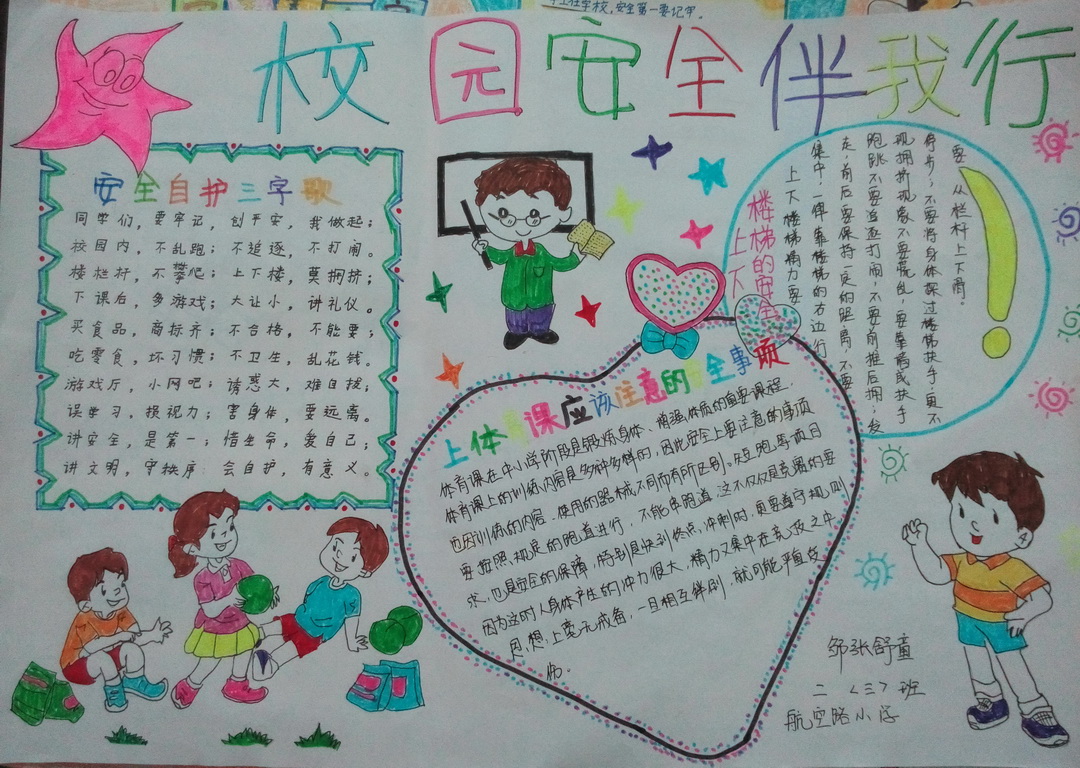 学生在学校，安全第一要记牢。
校园安全伴我行
安全自护三字歌
同学们，要牢记，创平安，我做起；
校园内，不乱跑；不追逐，不打闹。
楼栏杆，不攀爬；上下楼，莫拥挤；
下课后，多游戏；大让小，讲礼仪。
买食品，商标齐；不合格，不能要；
吃零食，坏习惯；不卫生，乱花钱。
游戏厅，小网吧；诱惑大，难自拔；
误学习，损视力；害身体，要远离。
讲安全，是第一；惜生命，爱自己；
讲文明，守秩序 会自护，有意义。
楼梯的安全
上下
上下楼梯精力要
集中，一律靠楼梯的右边行
走，前后要保持一定的距离，不要
跑跳不要追逐打闹，不要前推后拥；发
现拥挤现象不要慌乱，要靠墙或扶手
停步；不要将身体探过楼梯扶手，更不
要从栏杆上下滑。
上体课应该注意的全事项
体育课在中小学阶段是锻炼身体、增强体质的重要课程．
体育课上的训练内容是多种多样的，因此安全上要注意的事项
也因训练的内容、使用的器械不同而有所区别。短跑等项目
要按照规定的跑道进行，不能串跑道。这不仅仅是竞赛的要
求，也是安全的保障，特别是快到终点冲刺时，更要遵守规则
因为这时人身体产生的冲力很大，精力又集中在竞技之中，
思想上毫无戒备，一旦相互绊倒，就可能严重受
伤。
邹张舒童
二〈三〉班
航空路小学